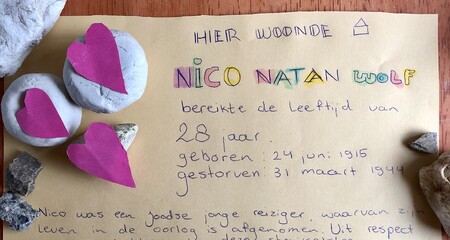 HIER WOONDE
NICO NATAN WOLF
bereikte de leeftijd van
28 jaar.
geboren: 24 juni 1915
gestorven: 31 maart 1944
Nico was een joodse jonge reiziger, waarvan zijn
leven in de oorlog is afgenomen. Uit respect